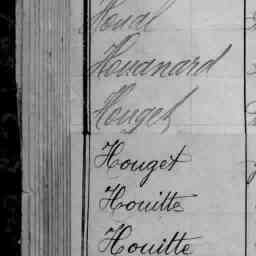 Houal
Houanard
Houget
Houget
Houitte
Houitte